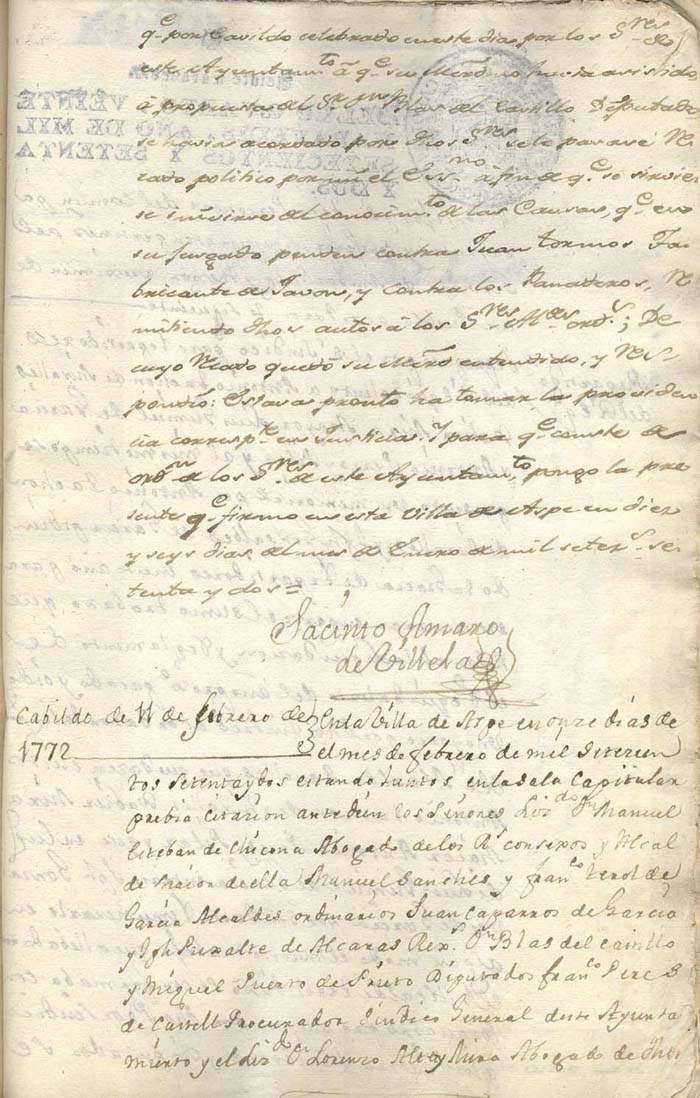 q.e por Cavildo celebrado en este dia por los S.res de
este Ayuntam.to á q.e su Merd. no havia asistido
á propuesta del S.r D.n Blas del Castillo Deputado
se havia acordado por dhos S.res se le pasase Re
cado politico por mi el Ess.no á fin de q.e se sirvie
se sinivirse del conocim.to de las Causas, q.e en
su Jusgado penden contra Juan tormos Fa
bricante de Javon, y contra los Panaderos, Re
mitiendo dhos autos á los S.res Al.des ord.s; De
cuyo Recado quedó su Merd. entendido, y Res
pondió: Estava pronto ha tomar la providen
cia corresp.te en Justicia. Y para q.e conste de
orden de los S.res de este Ayuntam.to, pongo la pre
sente q.e firmo en esta Villa de Aspe en diez
y seys dias del mes de Enero de mil setez.s se
tenta y dos=
Jacinto Amaro
de Villela
Cabildo de 11 de febrero de
1772
En la Villa de Aspe en onze dias de
el mes de febrero de mil Setecien
tos Setenta y dos estando Juntos en la sala Capitular
prebia Citacion antedún los Señores Liz.do D.n Manuel
Esteban de Chicona Abogado de los R.s consexos y Alcal
de Maior de ella Manuel Sanches y fran.co terol de
García Alcaldes ordinarios Juan Caparros de Garcia
y Jph Puxalte de Alcaras Rex.s D.n Blas del castillo
y Miguel Puerto de Prieto Diputados fran.co Pere S
de Castell Procurador Sindico General deste Ayunta
miento y el Liz.do D.n Lorenzo Alte Abogado de dhos